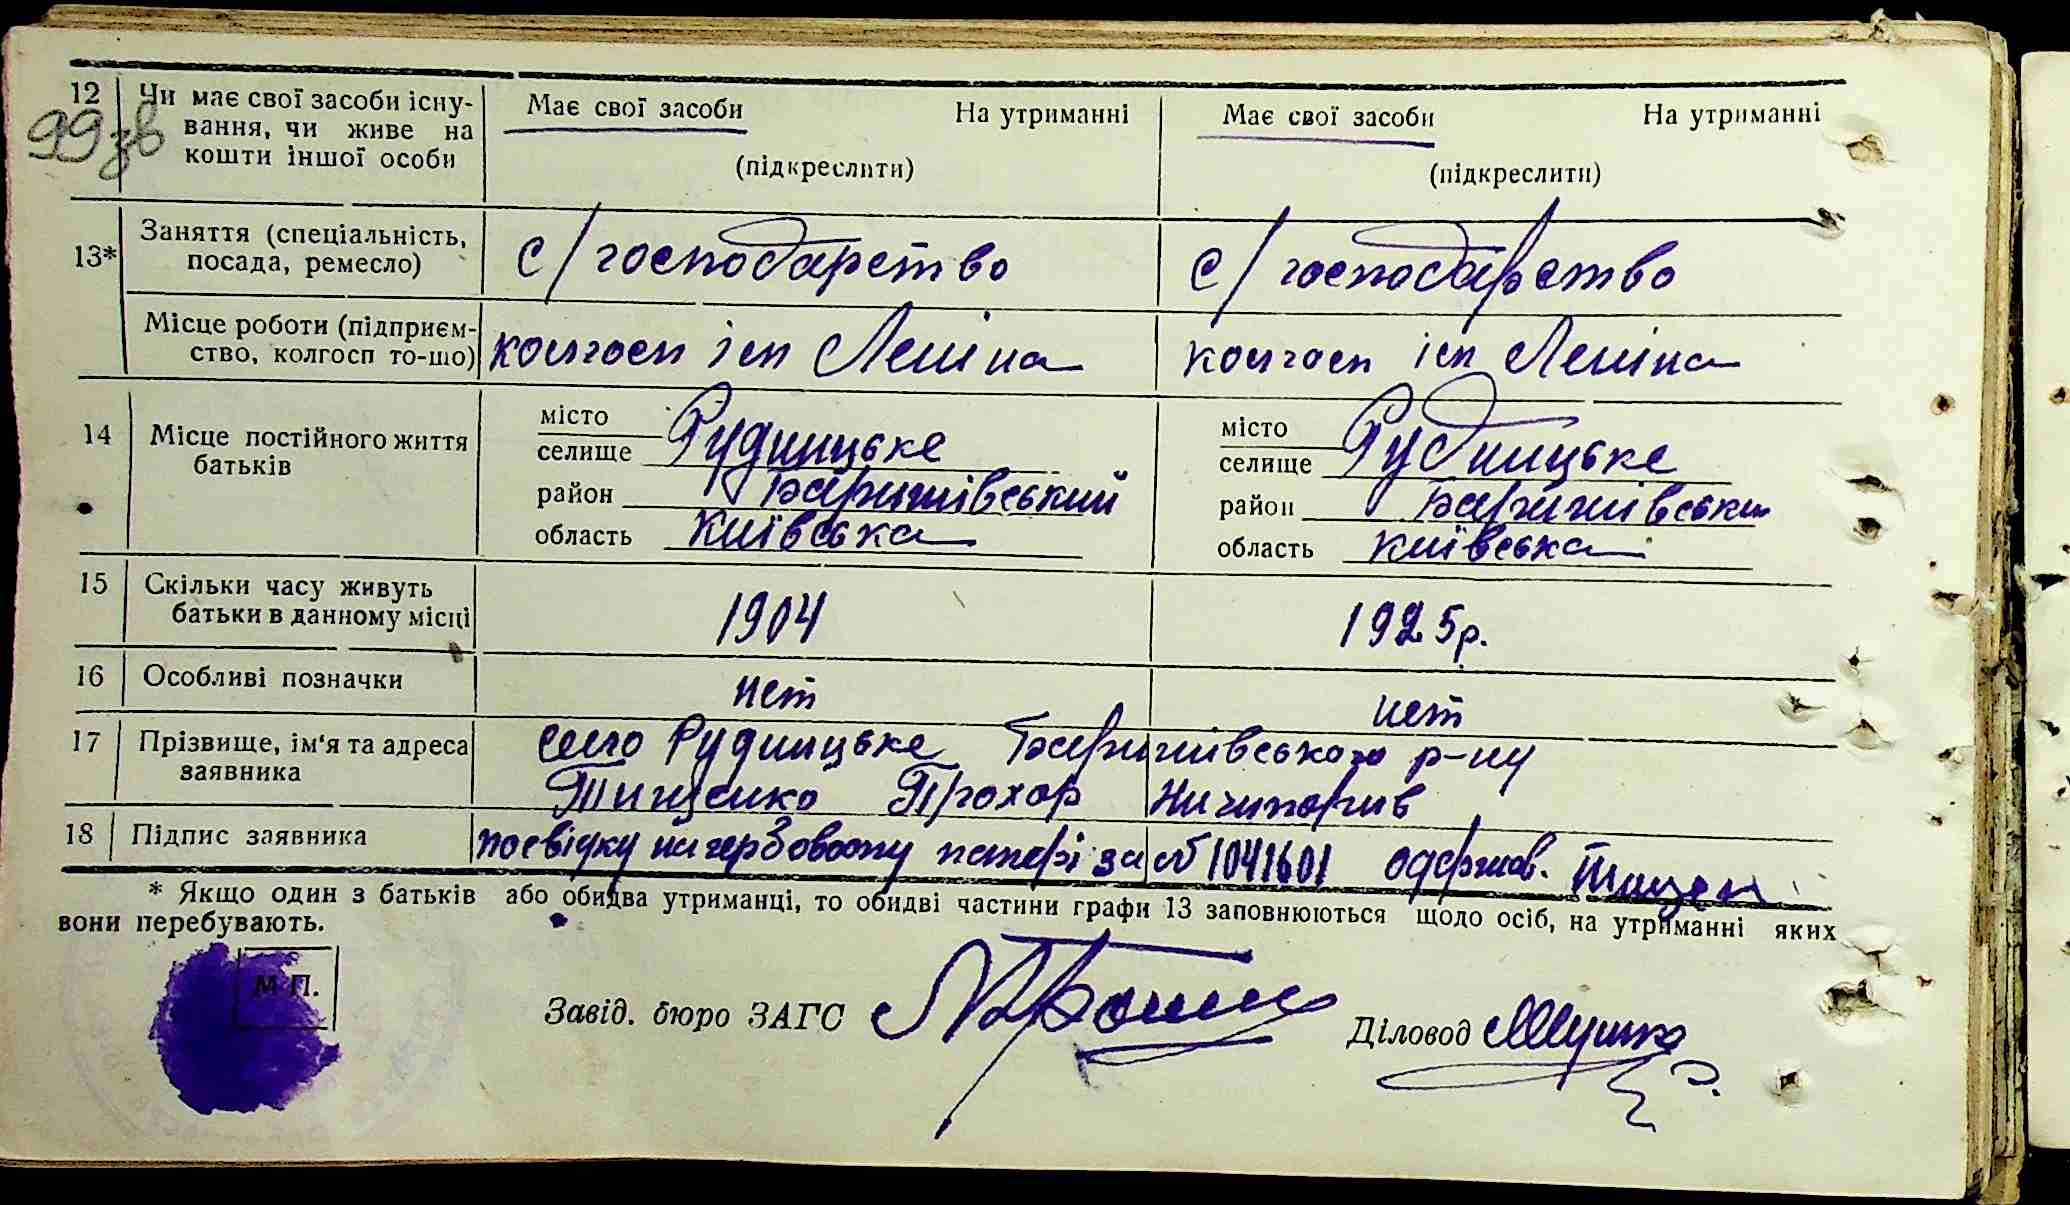 12 Чи має свої засоби існу- Має свої засоби На утриманні Має свої засоби На утриманні
99 зв вання, чи живе на
кошти іншої особи (підкреслити) (підкреслити)
13* Заняття (спеціальність, с/господарство с/господарство
посада, ремесло)
Місце роботи (підприєм- колгосп ім Леніна колгосп ім Леніна
ство, колгосп то-що)
14 Місце постійного життя місто Рудницьке місто Рудницьке
батьків селище селище
район Баришівський район Баришівськи
область Київська область Київська
15 Скільки часу живуть 1904 1925р.
батьки в данному місці
16 Особливі позначки нет нет
17 Прізвище, ім'я та адреса село Рудницьке Баришівського р-ну
заявника Тищенко Прохор Ничипорів
18 Підпис заявника посвідку на гербовому папері за № 1041601 одержав.
* Якщо один з батьків або обидва утриманці, то обидві частини графи 13 заповнюються щодо осіб, на утриманні яких
вони перебувають.
М П.
Завід. бюро ЗАГС Діловод